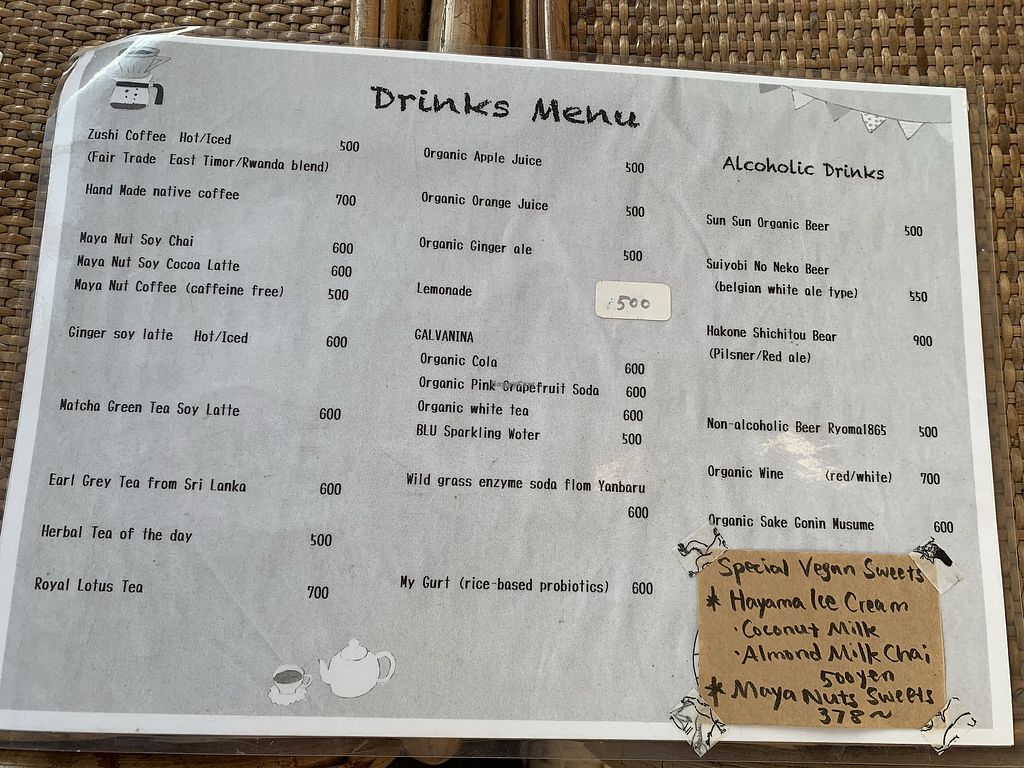 Drinks Menu
Zushi Coffee Hot/Iced 500
(Fair Trade East Timor/Rwanda blend)
Hand Made native coffee 700
Maya Nut Soy Chai 600
Maya Nut Soy Cocoa Latte 600
Maya Nut Coffee (caffeine free) 500
Ginger soy latte Hot/Iced 600
Matcha Green Tea Soy Latte 600
Earl Grey Tea from Sri Lanka 600
Herbal Tea of the day 500
Royal Lotus Tea 700
Organic Apple Juice 500
Organic Orange Juice 500
Organic Ginger ale 500
Lemonade 500
GALVANINA
Organic Cola 600
Organic Pink Grapefruit Soda 600
Organic white tea 600
BLU Sparkling Woter 500
Wild grass enzyme soda flom Yanbaru
600
My Gurt (rice-based probiotics) 600
Alcoholic Drinks
Sun Sun Organic Beer 500
Suiyobi No Neko Beer
(belgian white ale type) 550
Hakone Shichitou Bear 900
(Pilsner/Red ale)
Non-alcoholic Beer Ryoma1865 500
Organic Wine (red/white) 700
Organic Sake Gonin Musume 600
Special Vegan Sweets
* Hayama Ice Cream
・Coconut Milk
・Almond Milk Chai
500yen
* Maya Nuts Sweets
378~